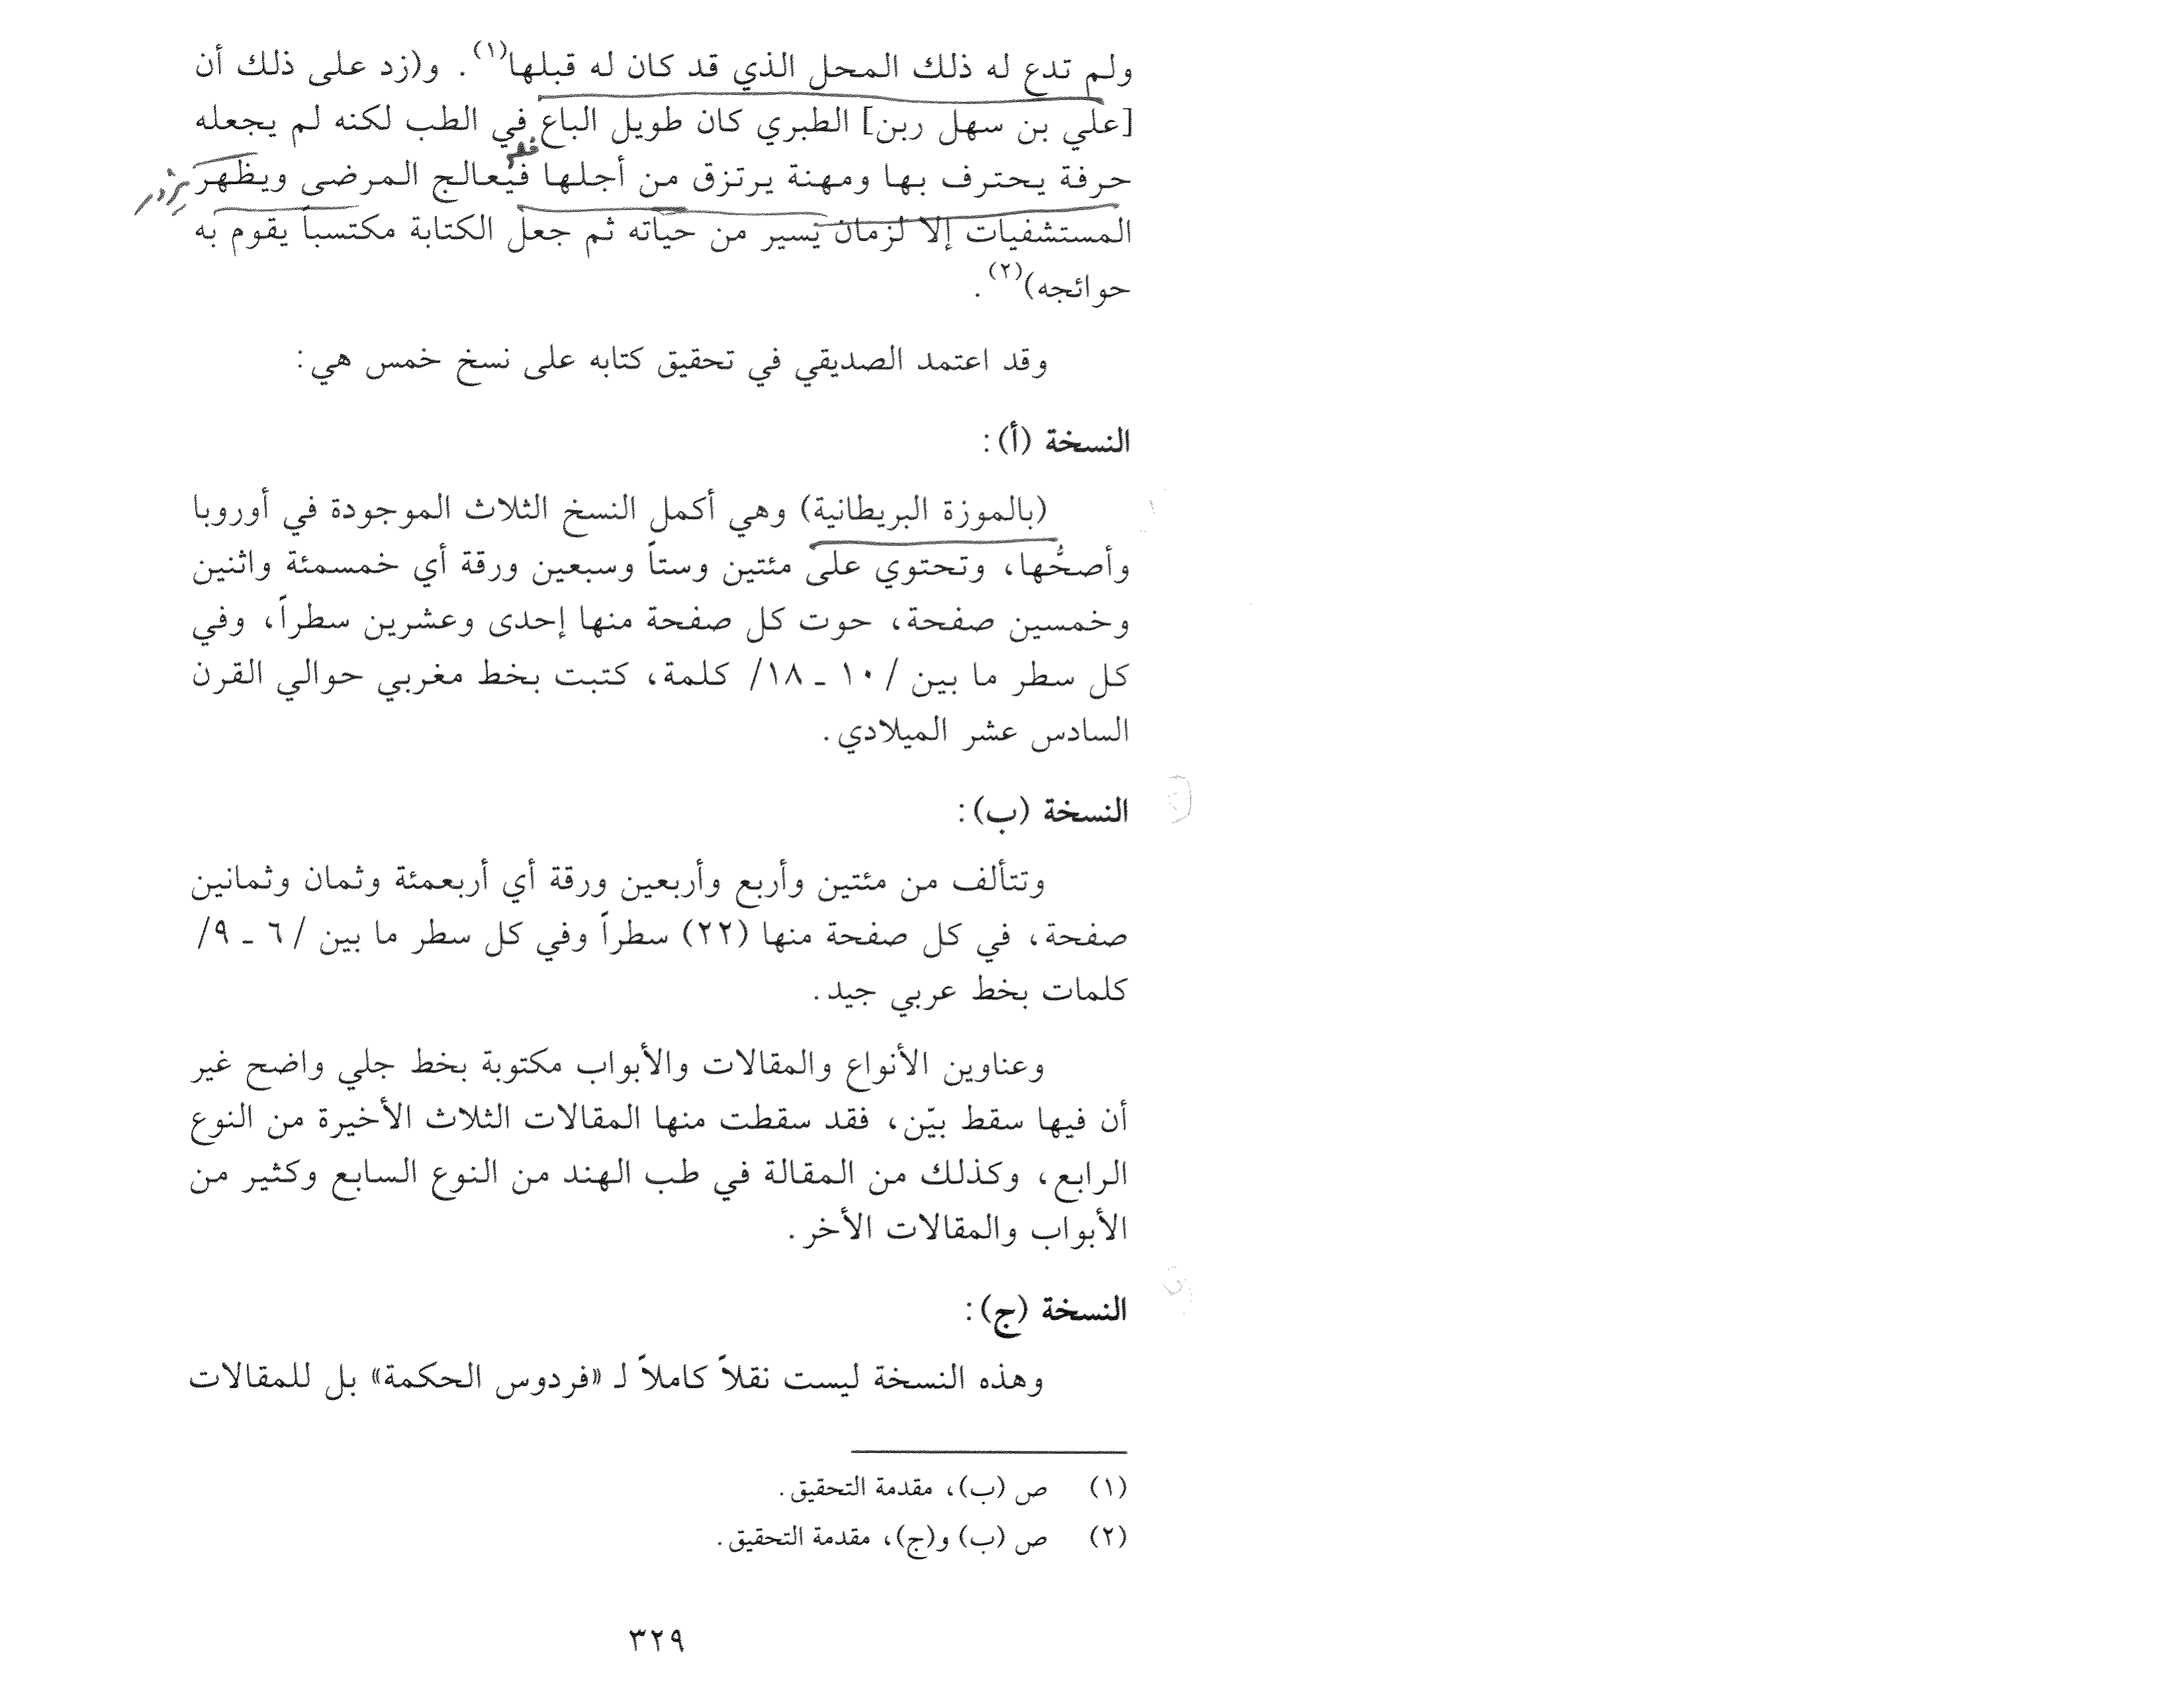 ولم تدع له ذلك المحل الذي قد كان له قبلها(١). و(زد على ذلك أن
[علي بن سهل ربن] الطبري كان طويل الباع في الطب لكنه لم يجعله
حرفة يحترف بها ومهنة يرتزق من أجلها فيعالج المرضى ويظهر
المستشفيات إلا لزمان يسير من حياته ثم جعل الكتابة مكتسباً يقوم به
حوائجه)(٢).
وقد اعتمد الصديقي في تحقيق كتابه على نسخ خمس هي:
النسخة (أ):
(بالموزة البريطانية) وهي أكمل النسخ الثلاث الموجودة في أوروبا
وأصحُّها، وتحتوي على مئتين وستاً وسبعين ورقة أي خمسمئة واثنين
وخمسين صفحة، حوت كل صفحة منها إحدى وعشرين سطراً، وفي
كل سطر ما بين /١٠ ـ ١٨/ كلمة، كتبت بخط مغربي حوالي القرن
السادس عشر الميلادي.
النسخة (ب):
وتتألف من مئتين وأربع وأربعين ورقة أي أربعمئة وثمان وثمانين
صفحة، في كل صفحة منها (٢٢) سطراً وفي كل سطر ما بين /٦ ـ ٩/
كلمات بخط عربي جيد.
وعناوين الأنواع والمقالات والأبواب مكتوبة بخط جلي واضح غير
أن فيها سقط بيّن، فقد سقطت منها المقالات الثلاث الأخيرة من النوع
الرابع، وكذلك من المقالة في طب الهند من النوع السابع وكثير من
الأبواب والمقالات الأخر.
النسخة (ج):
وهذه النسخة ليست نقلاً كاملاً لـ «فردوس الحكمة» بل للمقالات
(١) ص (ب)، مقدمة التحقيق.
(٢) ص (ب) و(ج)، مقدمة التحقيق.
٣٢٩